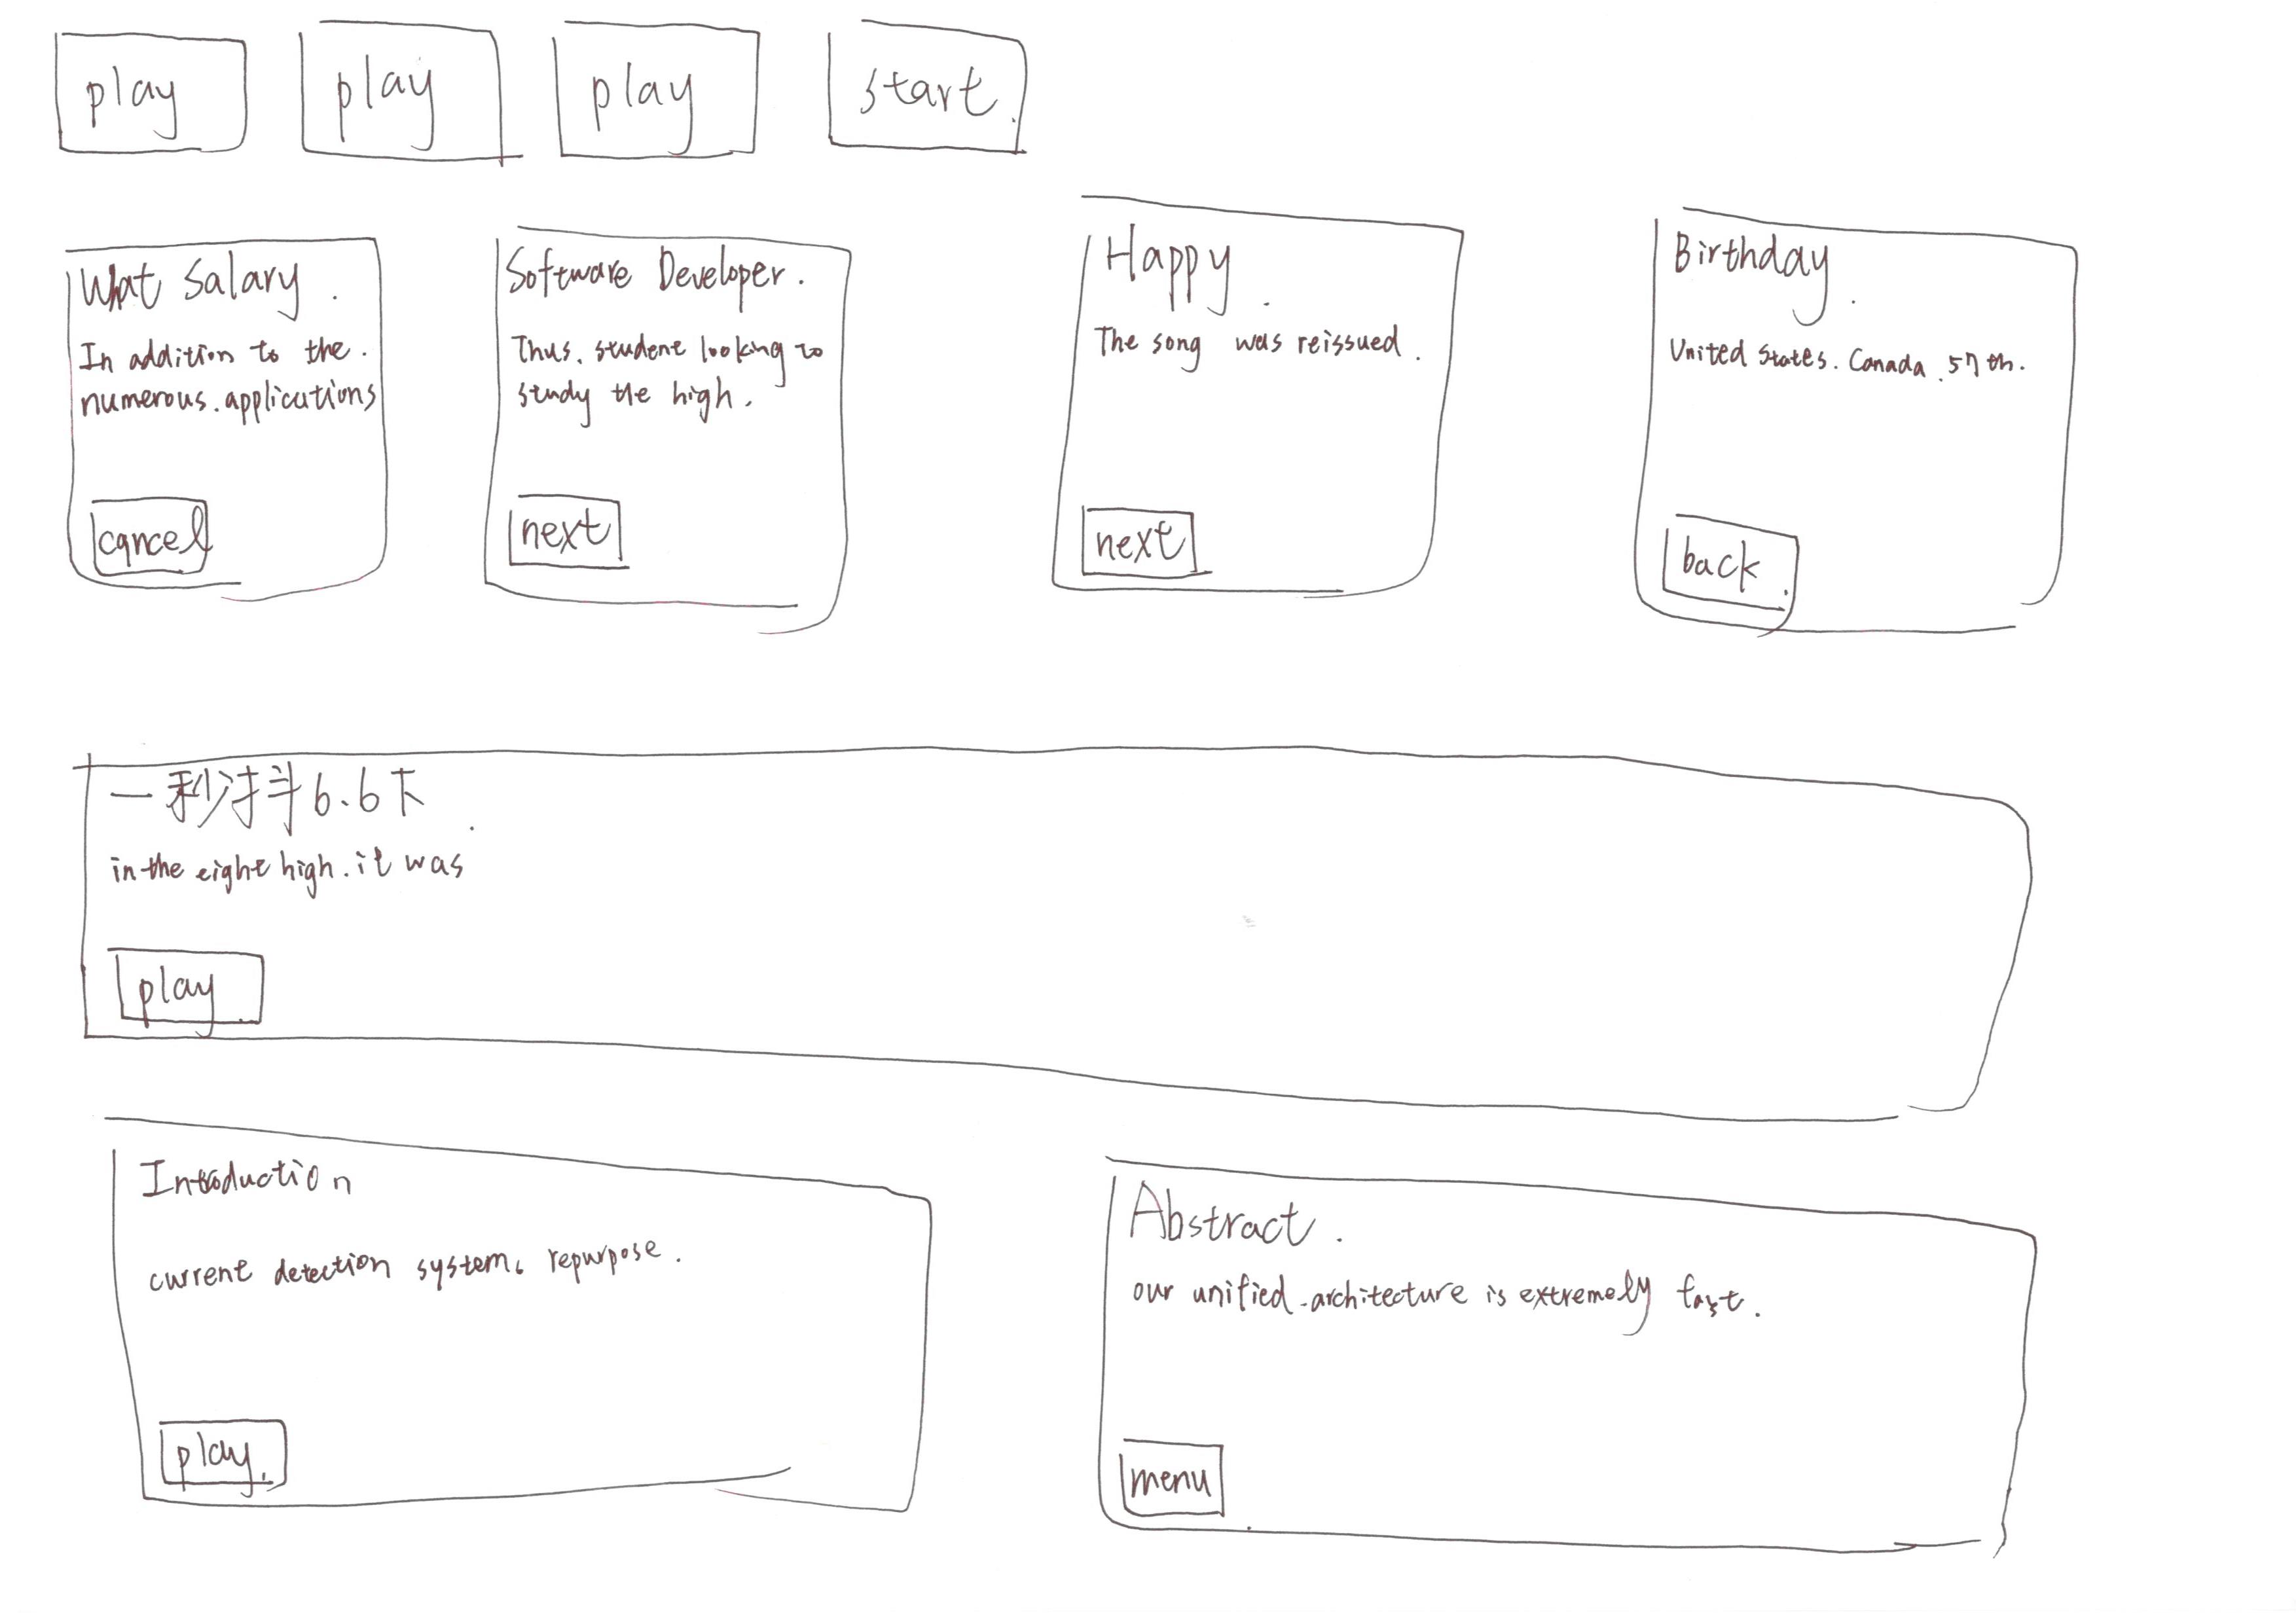 play
play
play
start.
What Salary.
In addition to the.
numerous.applications
cancel
Software Developer.
Thus. student looking to
study the high.
next
Happy.
The song was reissued.
next
Birthday.
United States. Canada.57th.
back.
一秒抖6.6下.
in the eight high. it was
play.
Introduction
current detection systems repurpose.
play.
Abstract.
our unified architecture is extremely fast.
menu.